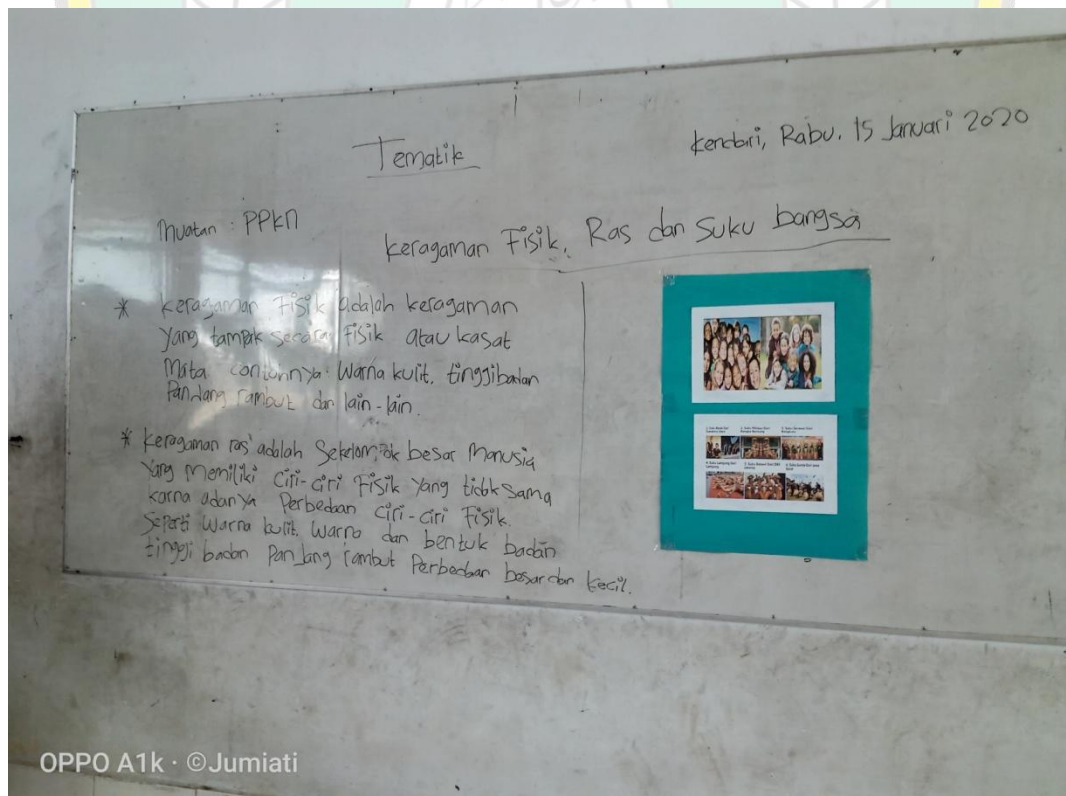 Tematik
Kendari, Rabu. 15 Januari 2020
Muatan : PPKN
Keragaman Fisik, Ras dan Suku bangsa
* keragaman Fisik adalah keragaman
yang tampak secara Fisik atau kasat
Mata contohnya: Warna kulit, tinggi badan
Pandang rambut dan lain-lain.
* keragaman ras adalah Sekelompok besar Manusia
Yang memiliki Ciri-ciri Fisik yang tidak Sama
karna adanya Perbedaan Ciri-ciri Fisik.
Seperti Warna kulit, Warna dan bentuk badan
tinggi badan Panjang rambut Perbedaan besar dan kecil.
OPPO A1k · ©Jumiati